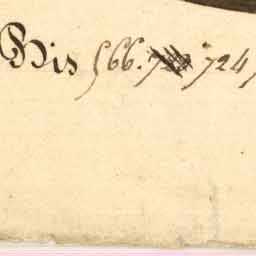 Bis 566. 724